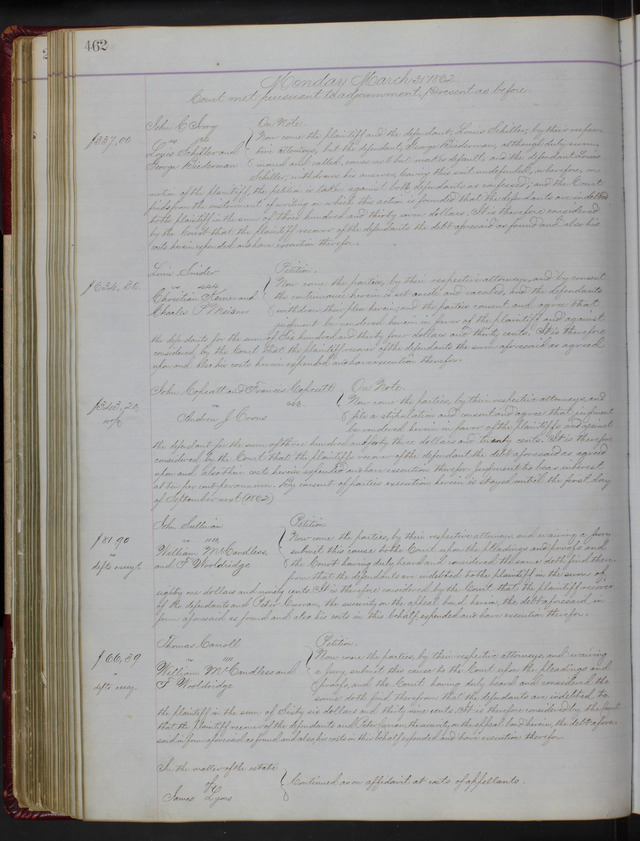 462
Monday March 31 1862
Court met pursuant to adjournment, present as before.
$337,00
John C Ivory
vs
Louis Schiller and
George Biederman
On Note
Now come the plaintiff and the defendant, Louis Schiller, by their respec-
tive attorneys, but the defendant, George Biederman, although duly sum-
moned and called, comes not but makes default; and the defendant Louis
Schiller, withdraws his answer, leaving this suit undefended, wherefore, on
motion of the plaintiff, the petition is taken against both defendants as confessed; and the Court
finds from the instrument of writing on which this action is founded that the defendants are indebted
to the plaintiff in the sum of three hundred and thirty seven dollars. It is therefore considered
by the Court that the plaintiff recover of the defendants the debt aforesaid as found and also his
costs herein expended and have execution therefor.
Louis Snider
vs
Christian and
Charles
Petition
Now come the parties, by their respective attorneys, and by consent
the continuance herein is set aside and vacated, and the defendants
withdraw their plea herein; and the parties consent and agree that
judgment be rendered herein in favor of the plaintiff and against
the defendants for the sum of Six hundred and thirty four dollars and thirty cents. It is therefore
considered by the Court that the plaintiff recover of the defendants the sum aforesaid as agreed
upon and also his costs herein expended and have execution therefor.
$343,20
John and Francis
vs
Andrew J
On Note
Now come the parties, by their respective attorneys and
file a stipulation and consent and agree that judgment
be rendered herein in favor of the plaintiffs and against
the defendant for the sum of three hundred and forty three dollars and twenty cents. It is therefore
considered by the Court that the plaintiffs recover of the defendant the debt aforesaid as agreed
upon and also their costs herein expended and have execution therefor judgment to bear interest
at ten per cent per annum. By consent of parties execution herein is stayed until the first day
of September next (1862)
$81.90
John Sullivan
vs
William McCandless
and F Wooldridge
Petition
Now come the parties, by their respective attorneys and waiving a jury
submit this cause to the Court upon the pleadings and proofs and
the Court having duly heard and considered the same doth find there-
from that the defendants are indebted to the plaintiff in the sum of
eighty one dollars and ninety cents. It is therefore considered by the Court that the plaintiff recover
of the defendants and Peter Curran, the security on the appeal bond herein, the debt aforesaid in
form aforesaid as found and also his costs in this behalf expended and have execution therefor.
$66,39
Thomas Carroll
vs
William McCandless and
F Wooldridge
Petition.
Now come the parties, by their respective attorneys, and waiving
a jury submit this cause to the Court upon the pleadings and
proofs, and the Court having duly heard and considered the
same doth find therefrom that the defendants are indebted to
the plaintiff in the sum of Sixty six dollars and thirty nine cents. It is therefore considered by the Court
that the plaintiff recover of the defendants and Peter Curran the security on the appeal bond herein, the debt afore-
said in form aforesaid as found and also his costs in this behalf expended and have execution therefor
In the matter of the estate
of
James Lyons
Continued as on affidavit at costs of appellants.